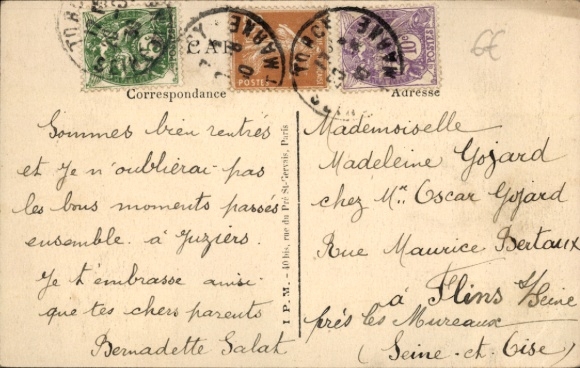 CAR
Correspondance
Adresse
Sommes bien rentrés
et Je n'oublierai pas
les bons moments passés
ensemble à Juziers.
Je t'embrasse ainsi
que tes chers parents
Bernadette Salat
I P. M. - 40 bis, rue du Pré-St-Gervais, Paris
Mademoiselle
Madeleine Gojard
chez Mr Oscar Gojard
Rue Maurice Bertaux
à Flins s/Seine
près les Mureaux
(Seine-et-Oise)
10c
POSTES
TORCY
MARNE
TORCY
MARNE
6€